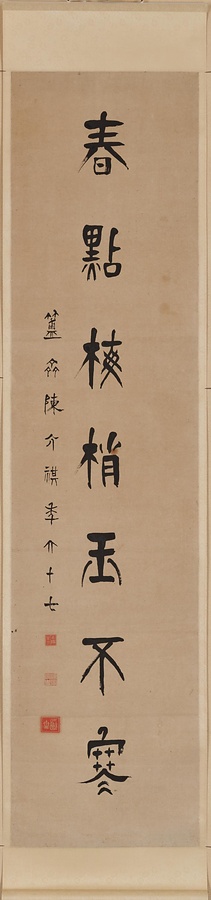 春點梅梢玉不寒
簠齋陳介祺年六十七